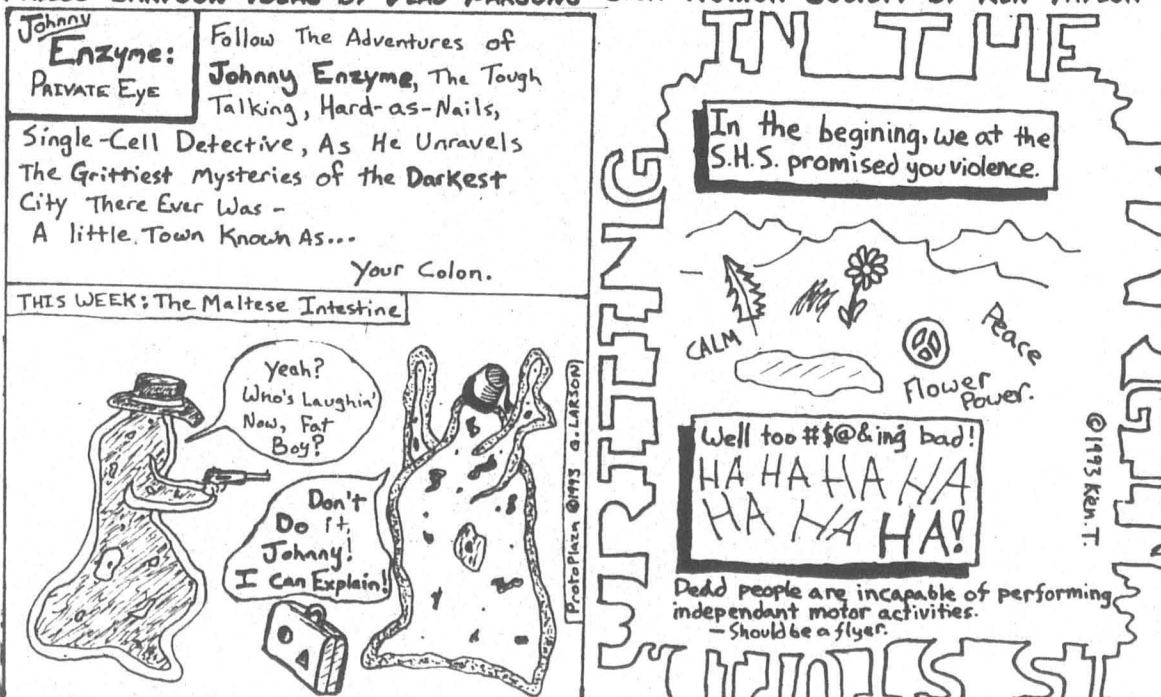 CARTOON IDEAS OF DEAD
HUMOR SOCIETY BY KEN TAYLOR
Johnny
Enzyme:
Private Eye
Follow The Adventures of
Johnny Enzyme, The Tough
Talking, Hard-as-Nails,
Single-Cell Detective, As He Unravels
The Grittiest Mysteries of the Darkest
City There Ever Was -
A little Town Known As...
Your Colon.
THIS WEEK: The Maltese Intestine
Yeah?
Who's Laughin'
Now, Fat
Boy?
Don't
Do it,
Johnny!
I Can Explain!
ProtoPlazn ©1993 G. LARSON
WRITING
IN THE
MARGIN
In the begining, we at the
S.H.S. promised you violence.
CALM
Peace
Flower
Power.
Well too #$@&ing bad!
HA HA HA HA
HA HA HA!
©1993 Ken. T.
Dedd people are incapable of performing
independant motor activities.
- Should be a flyer.
IS STUPID